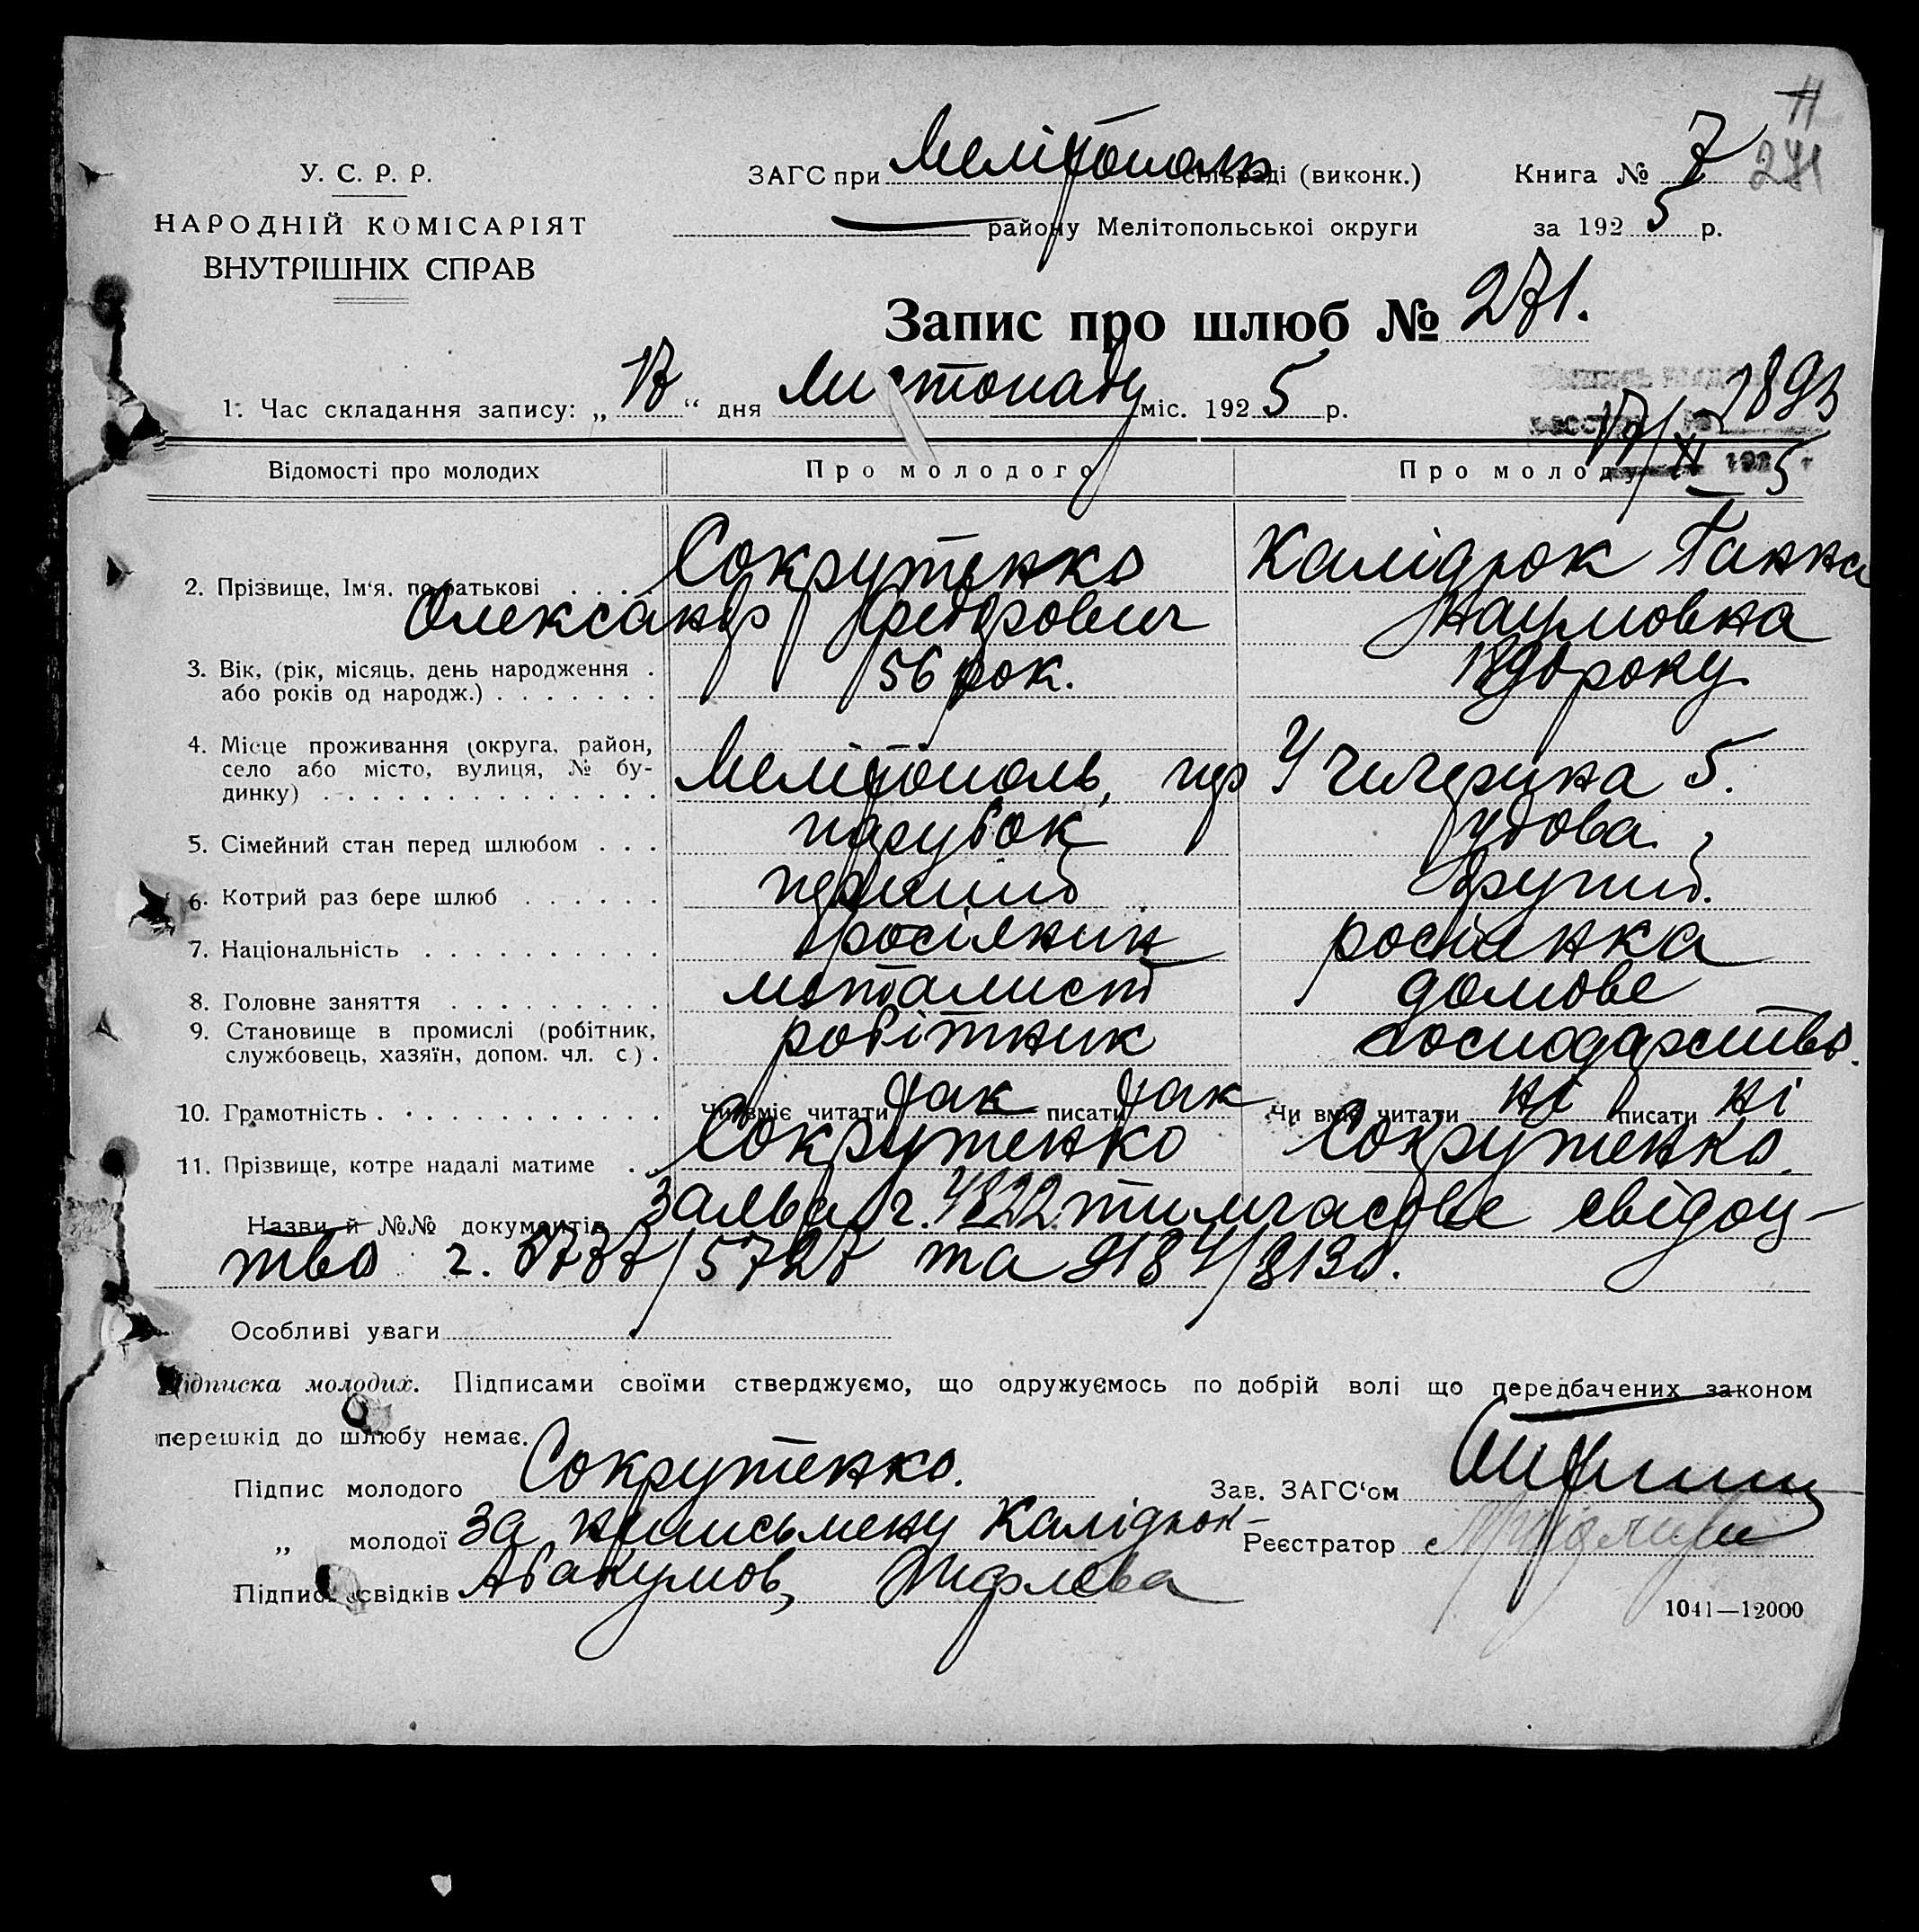 У. С. Р. Р.
НАРОДНІЙ КОМІСАРІЯТ
ВНУТРІШНІХ СПРАВ
ЗАГС при Мелітополь сільраді (виконк.)
району Мелітопольської округи
Книга № 7
271
за 1925 р.
Запис про шлюб № 271.
1. Час складання запису: „17“ дня Листопаду міс. 1925 р.
2893
17/XI 1925
Відомості про молодих Про молодого Про молоду
2. Прізвище, Ім'я, по батькові . . . . Сокрутенко Калідрюк Ганна
Олександр Федорович Наумовна
3. Вік, (рік, місяць, день народження . 56 рок. року
або років од народж.) . . . . . . .
4. Місце проживання (округа, район,
село або місто, вулиця, № бу-
динку) . . . . . . . . . . . . . . Мелітополь, пер Чичерина 5.
5. Сімейний стан перед шлюбом . . . парубок удова
6. Котрий раз бере шлюб . . . . . . перший другий.
7. Національність . . . . . . . . . . росіянин росіянка
8. Головне заняття . . . . . . . . . металист домове
9. Становище в промислі (робітник,
службовець, хазяїн, допом. чл. с) . робітник господарство.
10. Грамотність . . . . . . . . . . . . Чи вміє читати так писати так Чи вміє читати ні писати ні
11. Прізвище, котре надалі матиме . . Сокрутенко Сокрутенко.
Назви й №№ документів тимчасове свідоц-
тво ч. /5727 та 9184/8130.
Особливі уваги
Підписка молодих. Підписами своїми стверджуємо, що одружуємось по добрій волі що передбачених законом
перешкід до шлюбу немає.
Підпис молодого Сокрутенко.
Зав. ЗАГС'ом
„ молодої за неписьмену Калідрюк-
Реєстратор
Підпис свідків Абакумов,
1041—12000